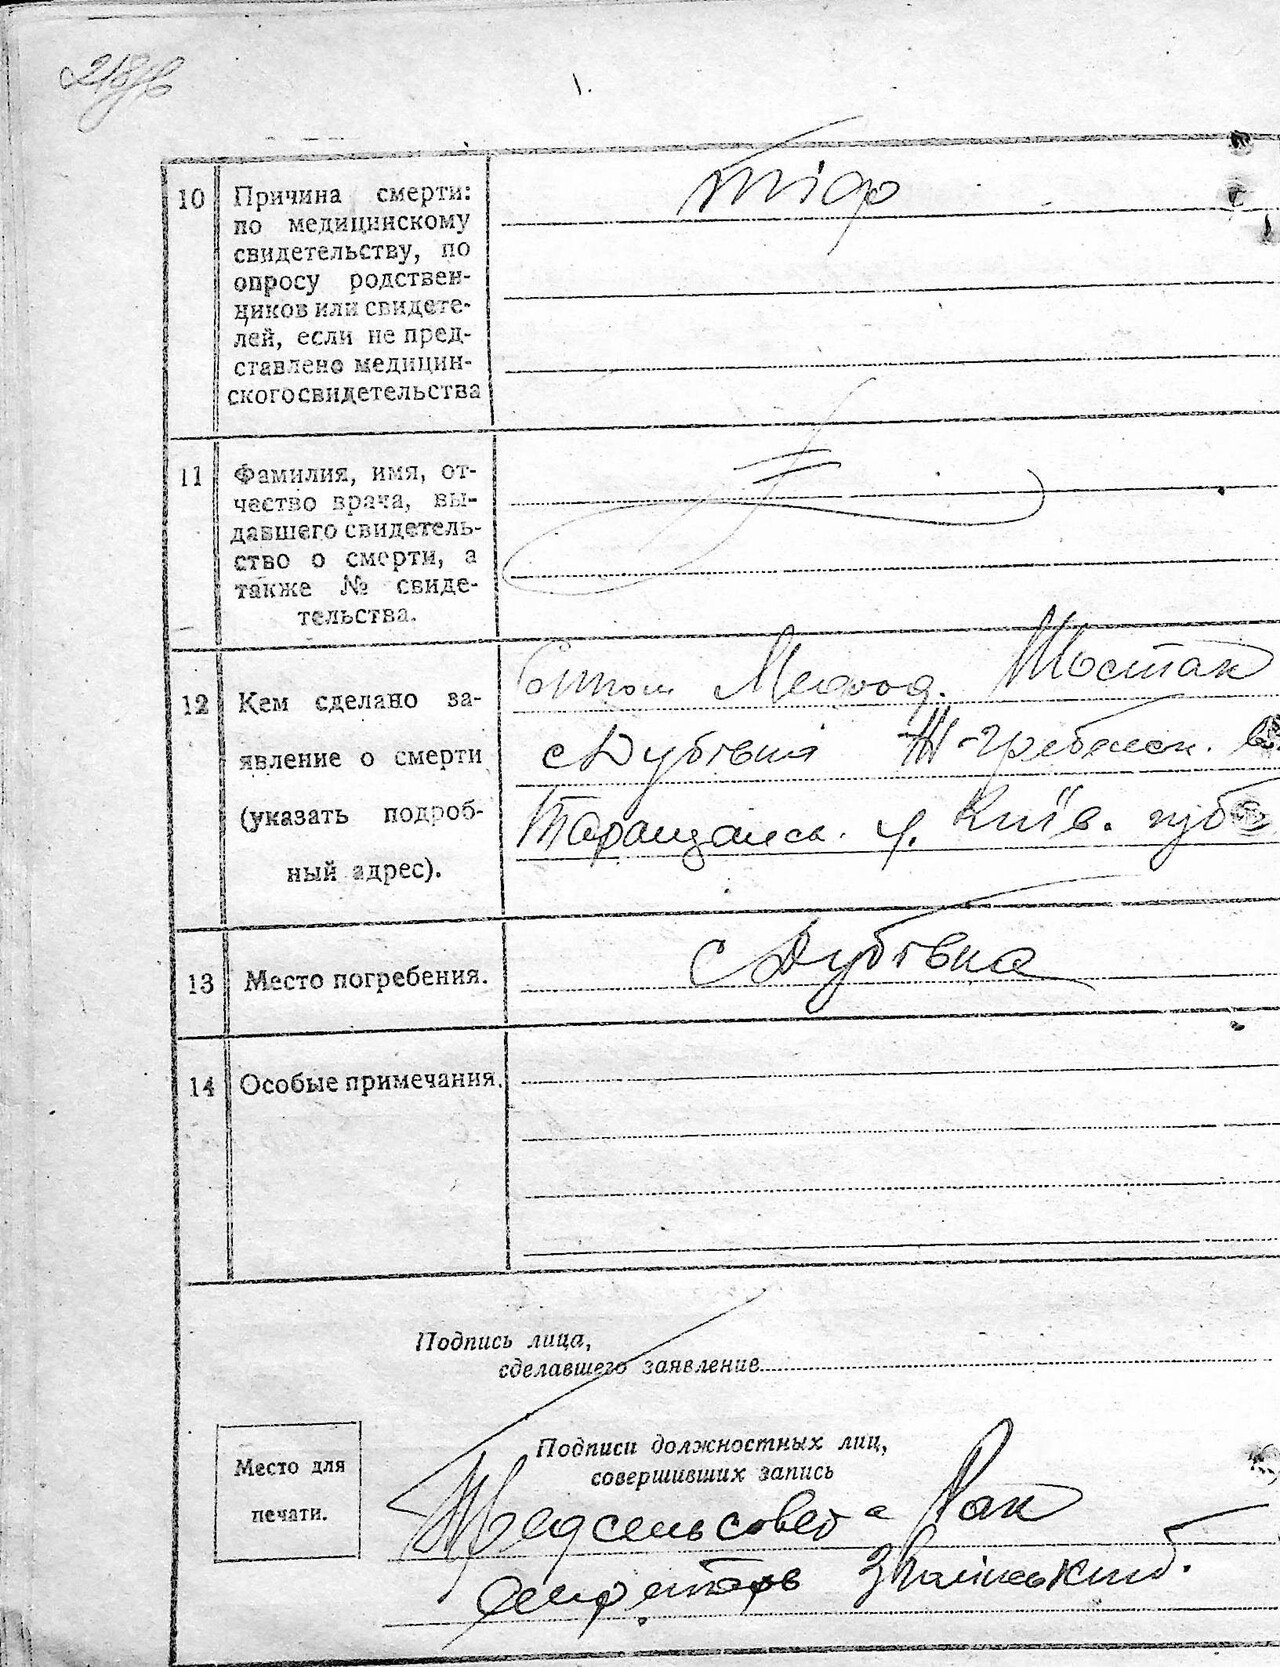 10 Причина смерти:
по медицинскому
свидетельству, по
опросу родствен-
ников или свидете-
лей, если не пред-
ставлено медицин-
ского свидетельства
тіф
11 Фамилия, имя, от-
чество врача, вы-
давшего свидетель-
ство о смерти, а
также № свиде-
тельства.
12 Кем сделано за-
явление о смерти
(указать подроб-
ный адрес).
Мефод. Шостак
с Дубівка Ж-Гребельск.
Таращанск. у. Київ. губ
13 Место погребения.
с Дубівка
14 Особые примечания.
Подпись лица,
сделавшего заявление
Место для
печати.
Подписи должностных лиц,
совершивших запись
Предсельсовета Рак
Секретарь